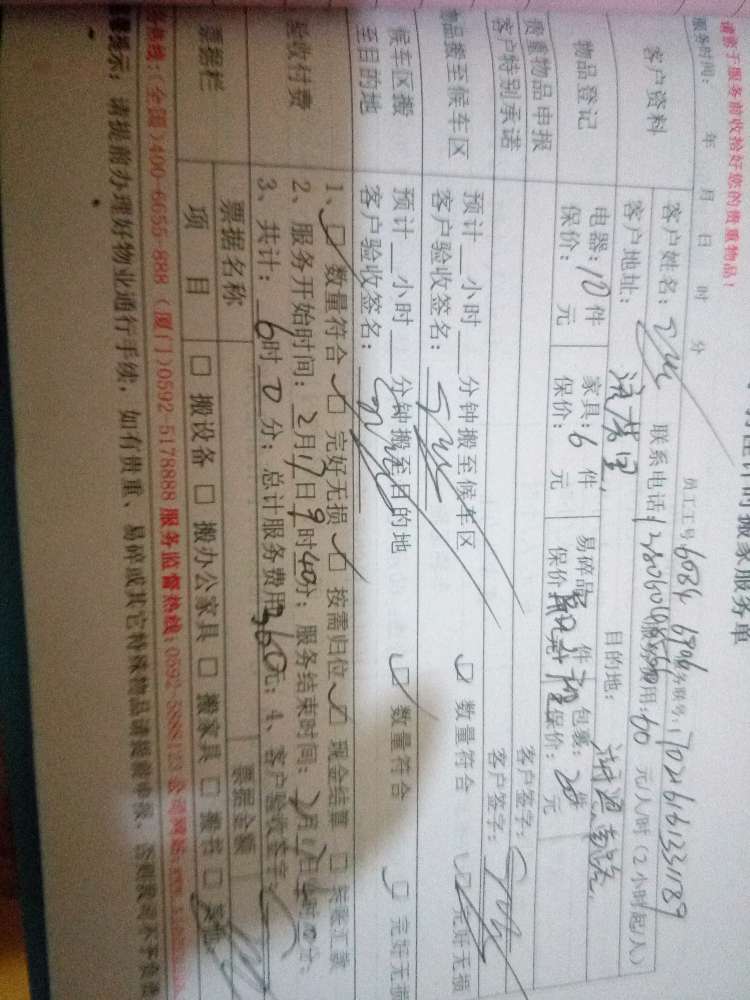 搬家服务单
请您于服务前收拾好您的贵重物品！
员工工号：6084 6906
服务时间： 年 月 日 时 分
客户资料
客户姓名： 联系电话： 服务费用：60 元/人/时（2小时起/人）
客户地址： 目的地：
物品登记
电器：10件 家具：6件 易碎品 件 包裹：20件
保价： 元 保价： 元 保价 保价： 元
贵重物品申报 客户签字：
客户特别承诺 客户签字：
物品搬至候车区
预计__小时__分钟搬至候车区 数量符合 完好无损
客户验收签名：
候车区搬至目的地
预计__小时__分钟搬至目的地 数量符合 完好无损
客户验收签名：
验收付费
1、 数量符合 完好无损 按需归位 现金结算 转账汇款
2、服务开始时间：2月17日9时40分；服务结束时间：
3、共计：6时0分；总计服务费用360元；4、客户验收签字：
票据栏
票据名称 票据金额
项 目 搬设备 搬办公家具 搬家具 搬书 其他
务热线：（全国）400-6655-888 （厦门）0592-5178888 服务监督热线：0592-5888123 公司网站：
提示：请提前办理好物业通行手续，如有贵重、易碎或其它特殊物品请提前申报，否则我司不予负责